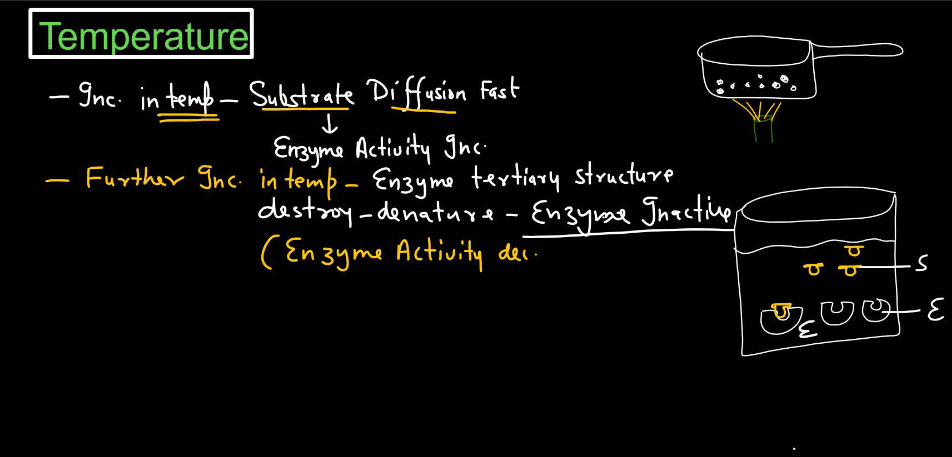 Temperature
— Inc. in temp — Substrate Diffusion Fast
↓
Enzyme Activity Inc.
— Further Inc. in temp — Enzyme tertiary structure
destroy - denature - Enzyme Inactive
(Enzyme Activity dec.
S
E
E